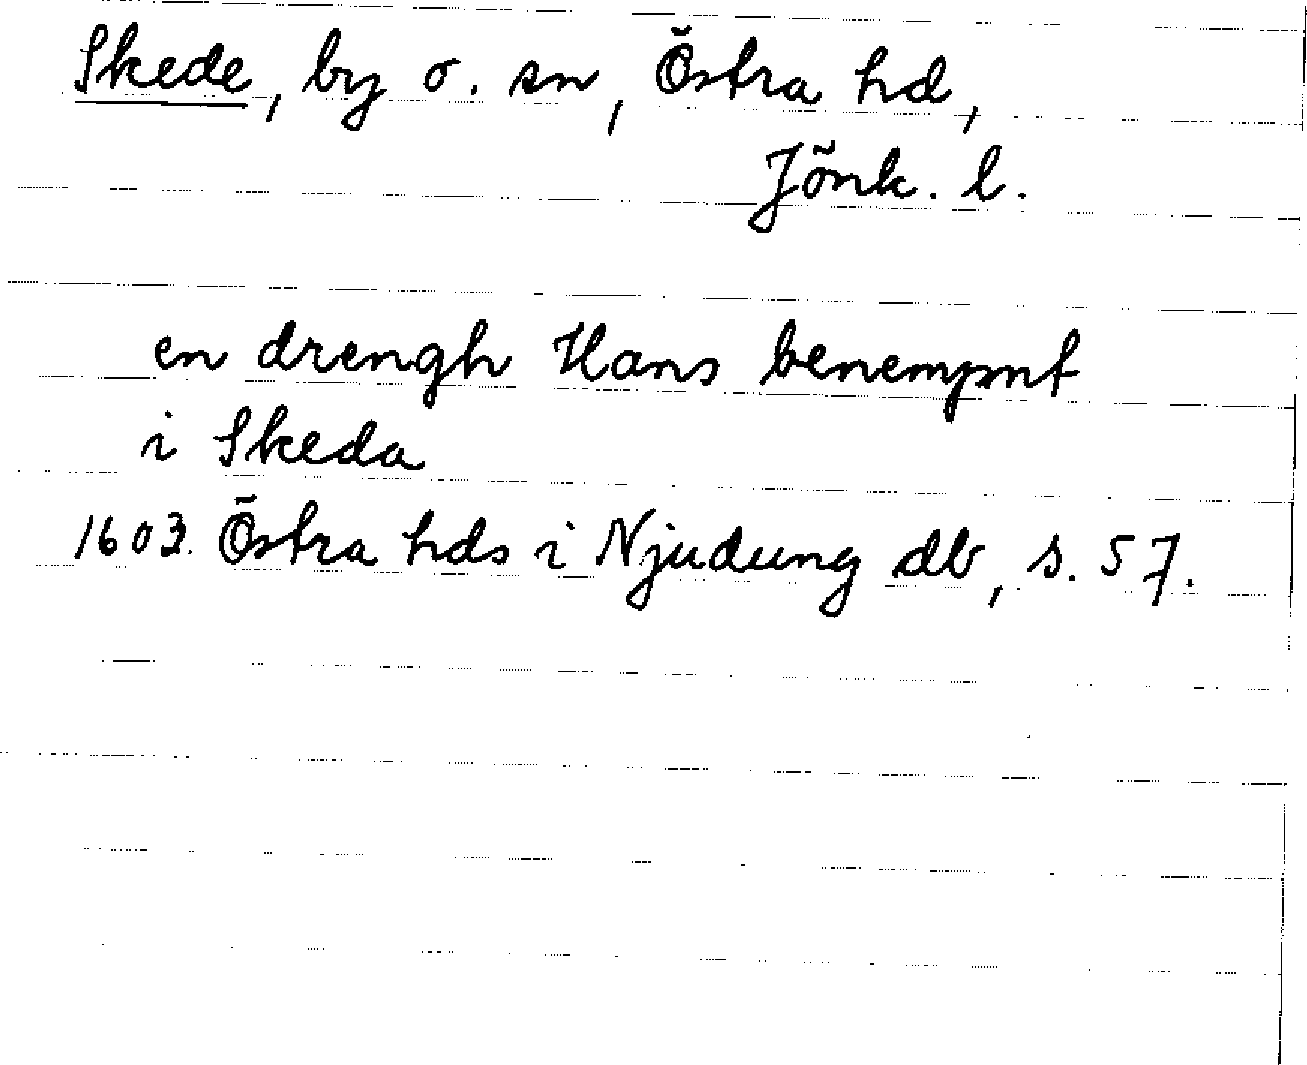 Skede, by o. sn, Östra hd,
Jönk. l.
en drengh Hans benempnt
i Skeda
1603. Östra hds i Njudung db, s. 57.